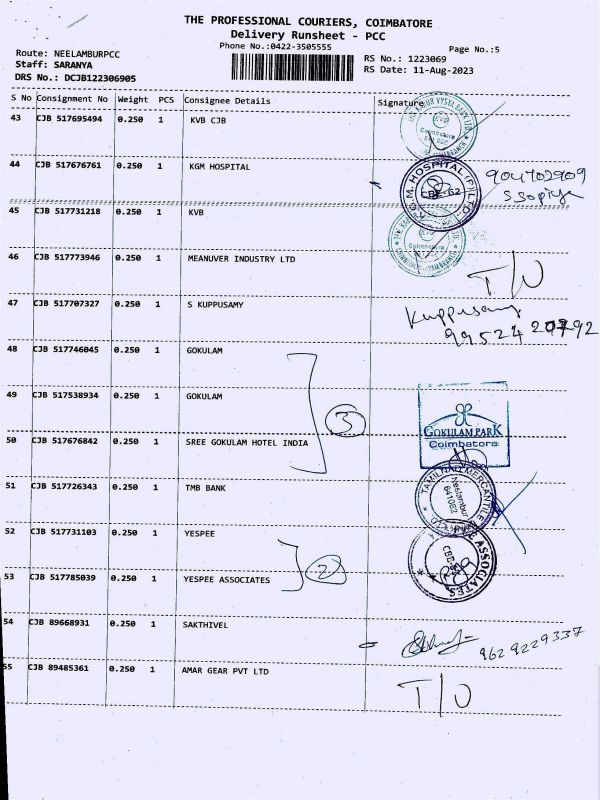 THE PROFESSIONAL COURIERS, COIMBATORE
Delivery Runsheet - PCC
Phone No.:0422-3505555
Page No.:5
Route: NEELAMBURPCC
Staff: SARANYA
DRS No.: DCJB122306905
RS No.: 1223069
RS Date: 11-Aug-2023
S No Consignment No Weight PCS Consignee Details Signature
43 CJB 517695494 0.250 1 KVB CJB
44 CJB 517676761 0.250 1 KGM HOSPITAL
K.G.M. HOSPITAL (P) LTD.
CBE-62
904702909
S Sopiya
45 CJB 517731218 0.250 1 KVB
Coimbatore
46 CJB 517773946 0.250 1 MEANUVER INDUSTRY LTD
T/U
47 CJB 517707327 0.250 1 S KUPPUSAMY
Kuppusamy
48 CJB 517746045 0.250 1 GOKULAM
49 CJB 517538934 0.250 1 GOKULAM
3
GOKULAM PARK
Coimbatore
50 CJB 517676842 0.250 1 SREE GOKULAM HOTEL INDIA
51 CJB 517726343 0.250 1 TMB BANK
TAMILNAD MERCANTILE
Neelambur
641062
52 CJB 517731103 0.250 1 YESPEE
2
ASSOCIATES
53 CJB 517785039 0.250 1 YESPEE ASSOCIATES
54 CJB 89668931 0.250 1 SAKTHIVEL
9629229337
55 CJB 89485361 0.250 1 AMAR GEAR PVT LTD
T/U